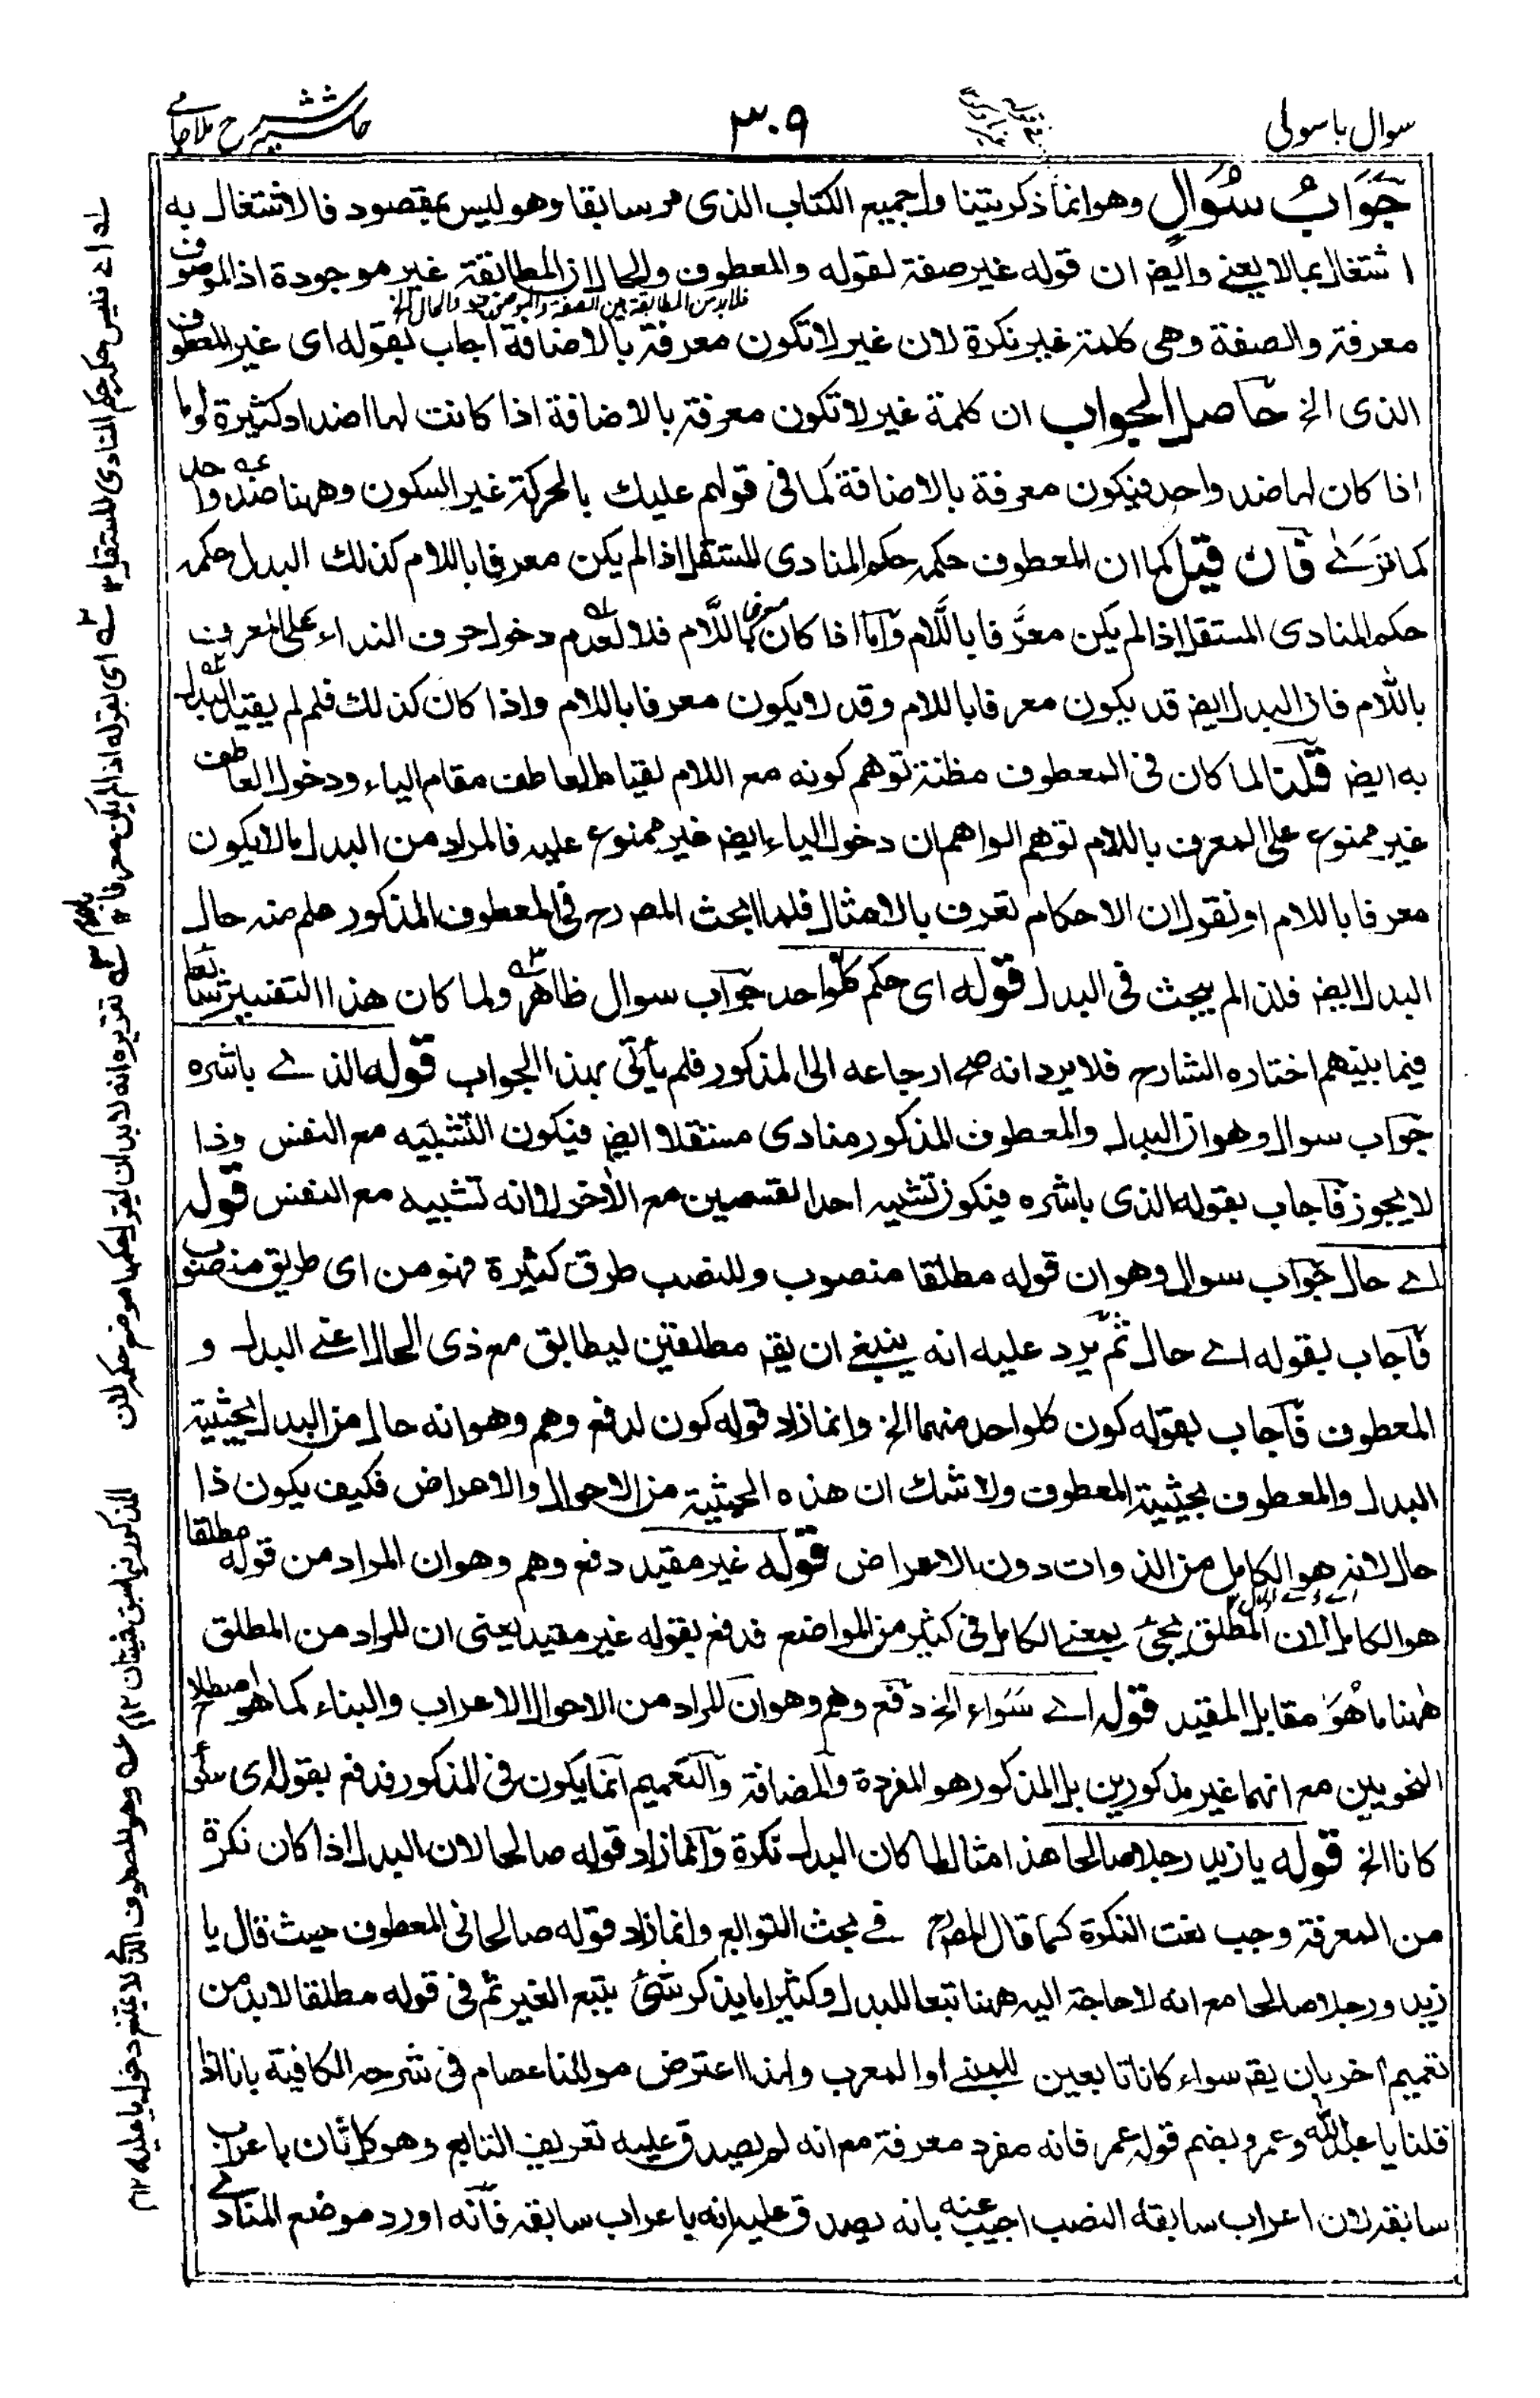 سوال باسولی
٣٠٩
حاشیہ شرح ملا جامے
جَوَابُ سُوَالٍ وهو انما ذكر بيننا واجميع الكتاب الذى مر سابقا وهو ليس بمقصود فالاشتغال به
اشتغال بما لا يعنے وايضا ان قوله غير صفة لقوله والمعطوف والحال ان المطابقة غير موجودة اذ الموصوف
فلا بد من المطابقة بين الصفة والموصوف والحال الخ
معرفة والصفة وهى كلمة غير نكرة لان غير لا تكون معرفة بالاضافة اجاب بقوله اى غير المعطوف
الذى الخ حاصل الجواب ان كلمة غير لا تكون معرفة بالاضافة اذا كانت لها اضداد كثيرة واما
اذا كان لها ضد واحد فيكون معرفة بالاضافة كما فى قولهم عليك بالحركة غير السكون وههنا ضد واحد
كما ترے فان قيل كما ان المعطوف حكمه حكم المنادى المستقل اذ الم يكن معرفا باللام كذلك البدل حكمه
حكم المنادى المستقل اذا لم يكن معرَّفا باللَّام وَاَمّا اذا كان معرفا باللَّام فلا لعدم دخول حرف النداء على المعرف
باللام فان البدل ايضا قد يكون معرفا باللام وقد لا يكون معرفا باللام واذا كان كذلك فلم لم يقيد البدل
به ايضا قلنا لما كان فى المعطوف مظنة توهم كونه مع اللام لقيام العاطف مقام الياء ودخول العاطف
غير ممنوع على المعرف باللام توهم الواهم ان دخول الياء ايضا غير ممنوع عليه فالمراد من البدل ما لا يكون
معرفا باللام او نقول ان الاحكام تعرف بالامثال فلما ابحث المصرح فى المعطوف المذكور علم منه حال
البدل ايضا فلذا لم يبحث فى البدل قوله اى حكم كل واحد جواب سوال ظاهر ولما كان هذا التفسير شائعا
فيما بينهم اختاره الشارح فلا يرد انه صح ارجاعه الى المذكور فلم يأتى بهذا الجواب قوله الذے باشره
جواب سوال وهو ان البدل والمعطوف المذكور منادى مستقلا ايضا فيكون التشبيه مع النفس وذا
لا يجوز فاجاب بقوله الذى باشره فيكون تشبيه احد القسمين مع الأخر لا انه تشبيه مع النفس قوله
اے حال جواب سوال وهو ان قوله مطلقا منصوب وللنصب طرق كثيرة فهو من اى طريق منصوب
فاجاب بقوله اے حال ثم يرد عليه انه ينبغے ان يقه مطلقين ليطابق مع ذى الحال اعنے البدل و
المعطوف فاجاب بقوله كون كل واحد منهما الخ وانما زاد قوله كون لدفع وهم وهو انه حال من البدل بحيثية
البدل والمعطوف بحيثية المعطوف ولا شك ان هذه الحيثية من الاحوال والاعراض فكيف يكون ذا
حال لانه هو الكامل من الذوات دون الاعراض قوله غير مقيد دفع وهم وهو ان المراد من قوله مطلقا
هو الكامل لان المطلق يجئ بمعنے الكامل فى كثير من المواضع فدفع بقوله غير مقيد يعنى ان المراد من المطلق
ههنا ما هُوَ مقابل المقيد قوله اے سَوَاء الخ دفع وهم وهو ان المراد من الاحوال الاعراب والبناء كما هو اصطلاح
النحويين مع انهما غير مذكورين بل المذكور هو المفردة والمضافة والتعميم انما يكون فى المذكور فدفع بقوله اى سواء
كانا الخ قوله يا زيد رجلا صالحا هذا مثال لما كان البدل نكرة وانما زاد قوله صالحا لان البدل اذا كان نكرة
من المعرفة وجب نعت النكرة كما قال المصرح فے بحث التوابع وانما زاد قوله صالحا فى المعطوف حيث قال يا
زيد ورجلا صالحا مع انه لا حاجة اليه ههنا تبعا للبدل وكثيرا ما يذكر شئ بتبع الغير ثم فى قوله مطلقا لا بد من
تعميم اخر بان يقه سواء كانا تابعين للمبنے او المعرب ولهذا اعترض مولانا عصام فى شرحه الكافية بانا اذا
قلنا يا عبد الله وعمرو بضم قوله عمر فانه مفرد معرفة مع انه لم يصدق عليه تعريف التابع وهو كل ثان باعراب
سابقه لان اعراب سابقه النصب اجيب عنه بانه يصدق عليه انه باعراب سابقه فانه اورد موضع المنادے
له اے فليس حكمه حكم المنادى المستقل ١٢ ٢ه اى بقوله اذا لم يكن معرفا باللام ١٢ ٣ه تقريره انه لا بد ان يقول حكمها موضع حكمه لان
المذكور فيما سبق شيئان ١٢ عه وهو المعطوف الذى لا يمتنع دخول يا عليه ١٢